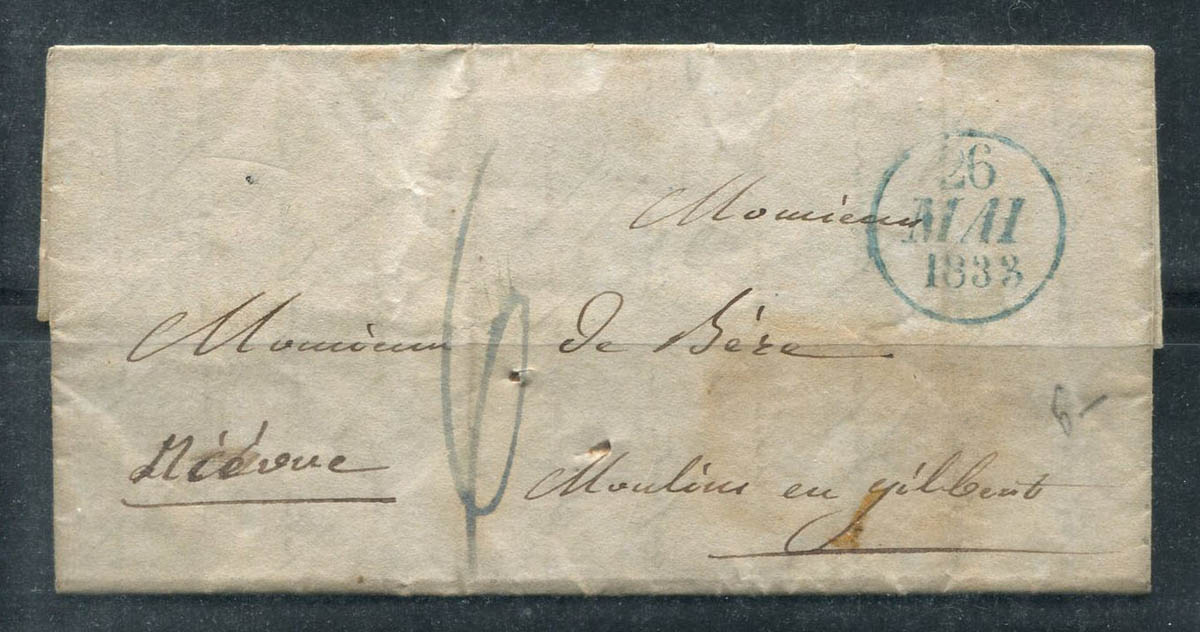 26
MAI
1833
Monsieur
Monsieur de Bèze
6
Nièvre
Moulins en gilbert
6-